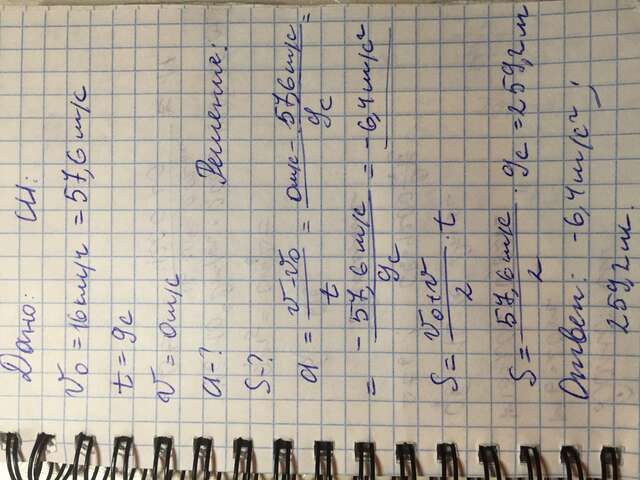 Дано: СИ:
v₀ = 16 м/ч = 57,6 м/с
t = 9с
v = 0 м/с
a - ?
S - ?
Решение:
a = (v - v₀)/t = (0 м/с - 57,6 м/с)/9с =
= - 57,6 м/с / 9с = -6,4 м/с²
S = (v₀ + v)/2 · t
S = 57,6 м/с / 2 · 9с = 259,2 м
Ответ: -6,4 м/с²;
259,2 м.